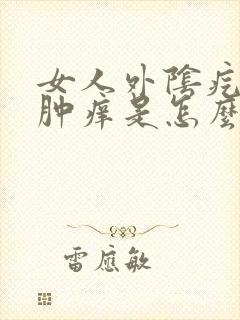 女人外陰疙
肿痒是怎麼
雷應敏